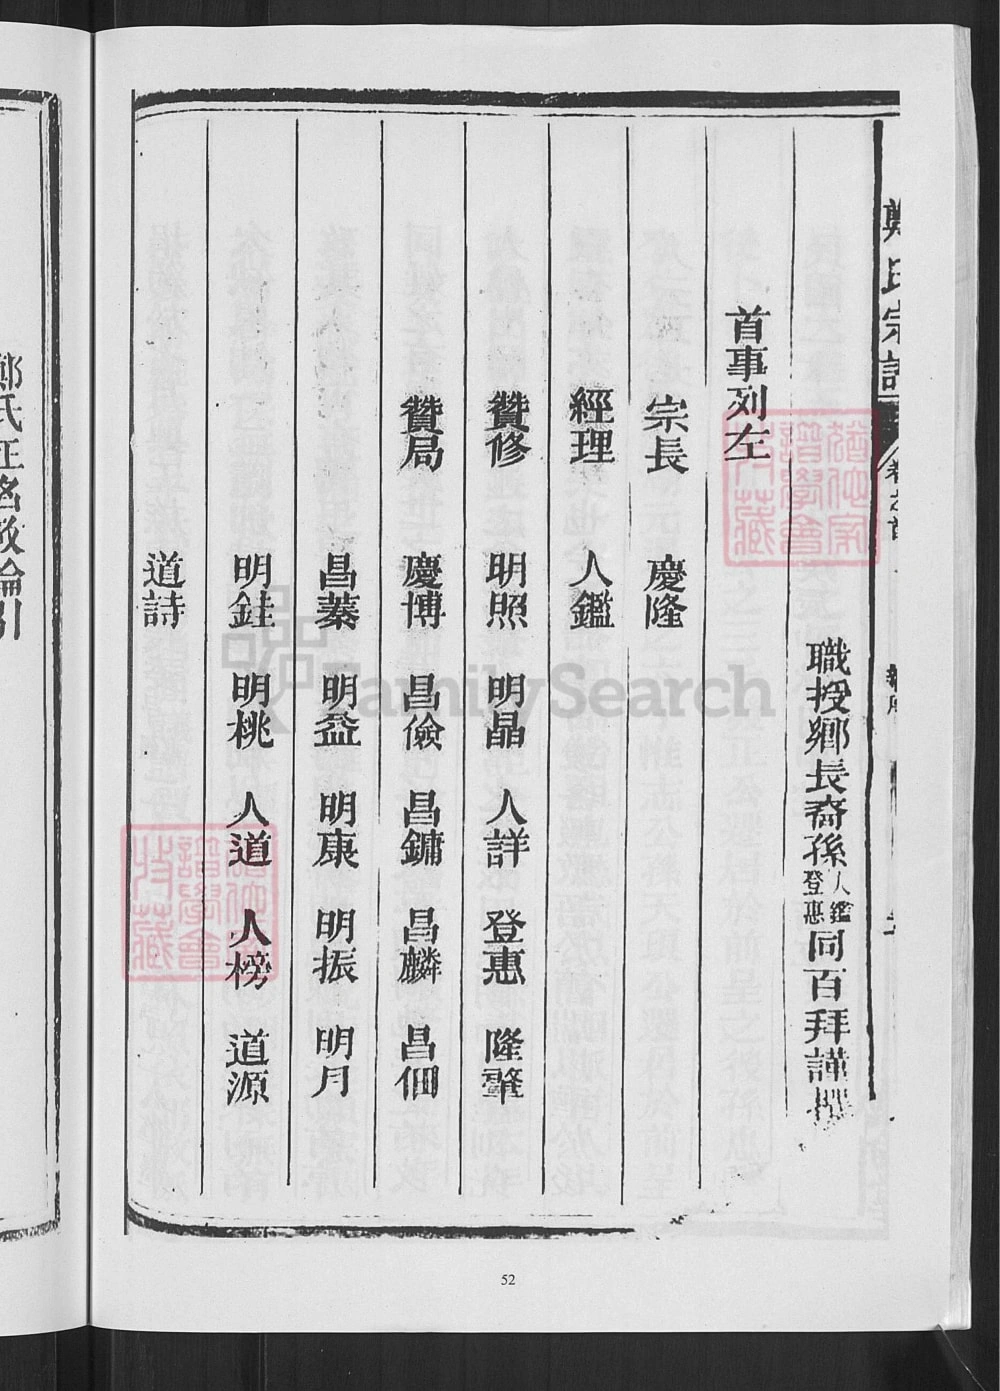 鄭氏宗譜 卷之首
職授鄉長裔孫人鑑登惠同百拜謹撰
首事列左
宗長 慶隆
經理 人鑑
贊修 明照 明晶 人詳 登惠 隆肇
贊局 慶博 昌儉 昌鏞 昌麟 昌佃
昌蓁 明益 明康 明振 明月
明銈 明桃 人道 人榜 道源
道詩
鄭氏正名
論引
52
FamilySearch